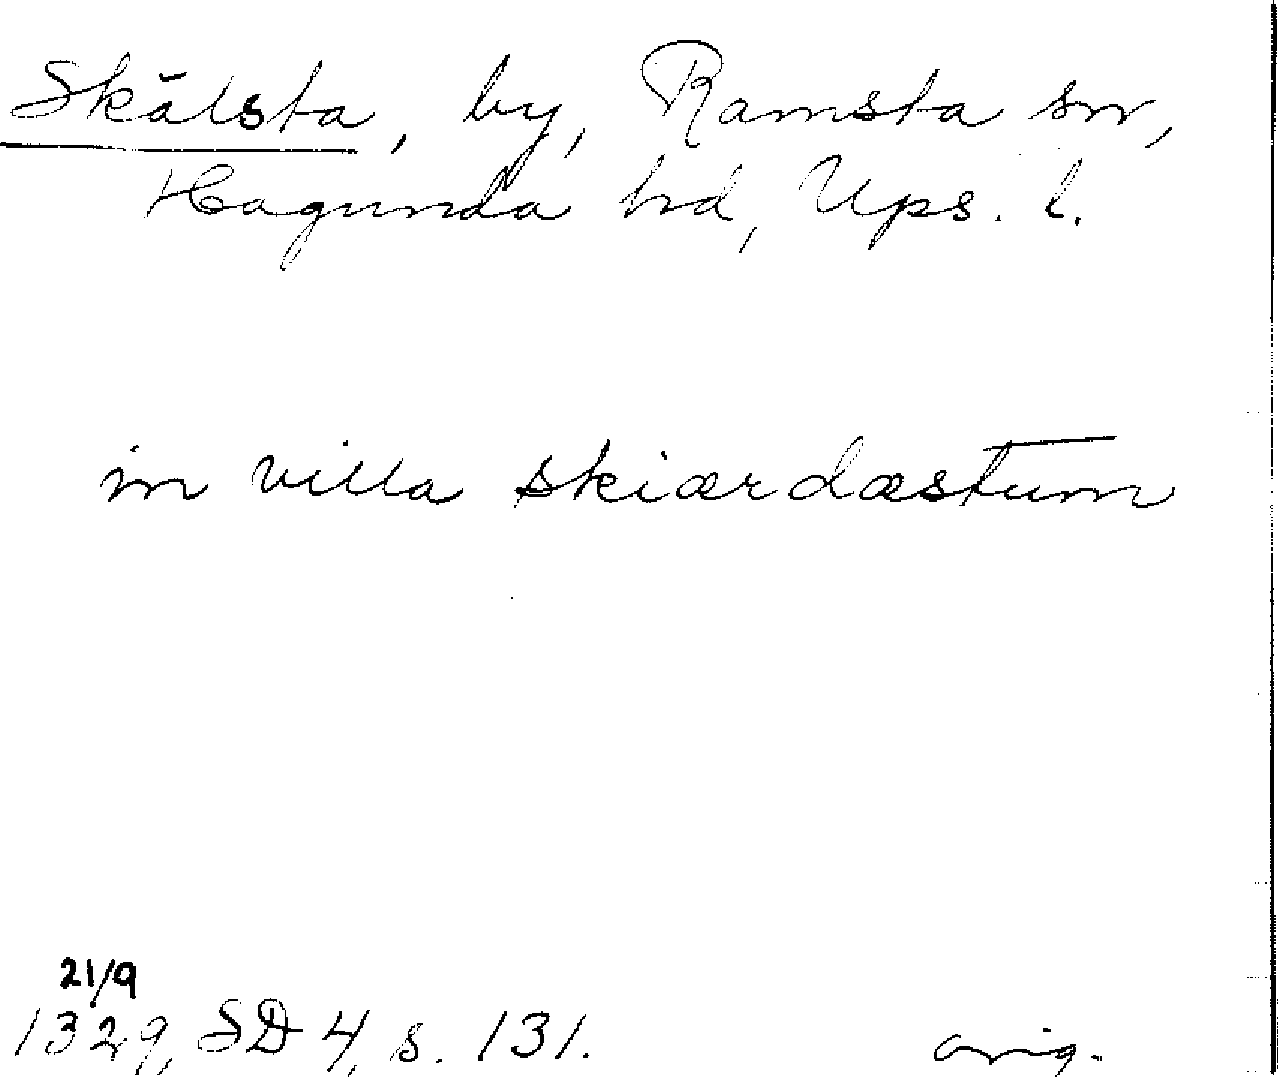 Skälsta, by, Ramsta sn,
Hagunda hd, Ups. l.
in villa skiærdæstum
21/9
1329, SD 4, s. 131. orig.